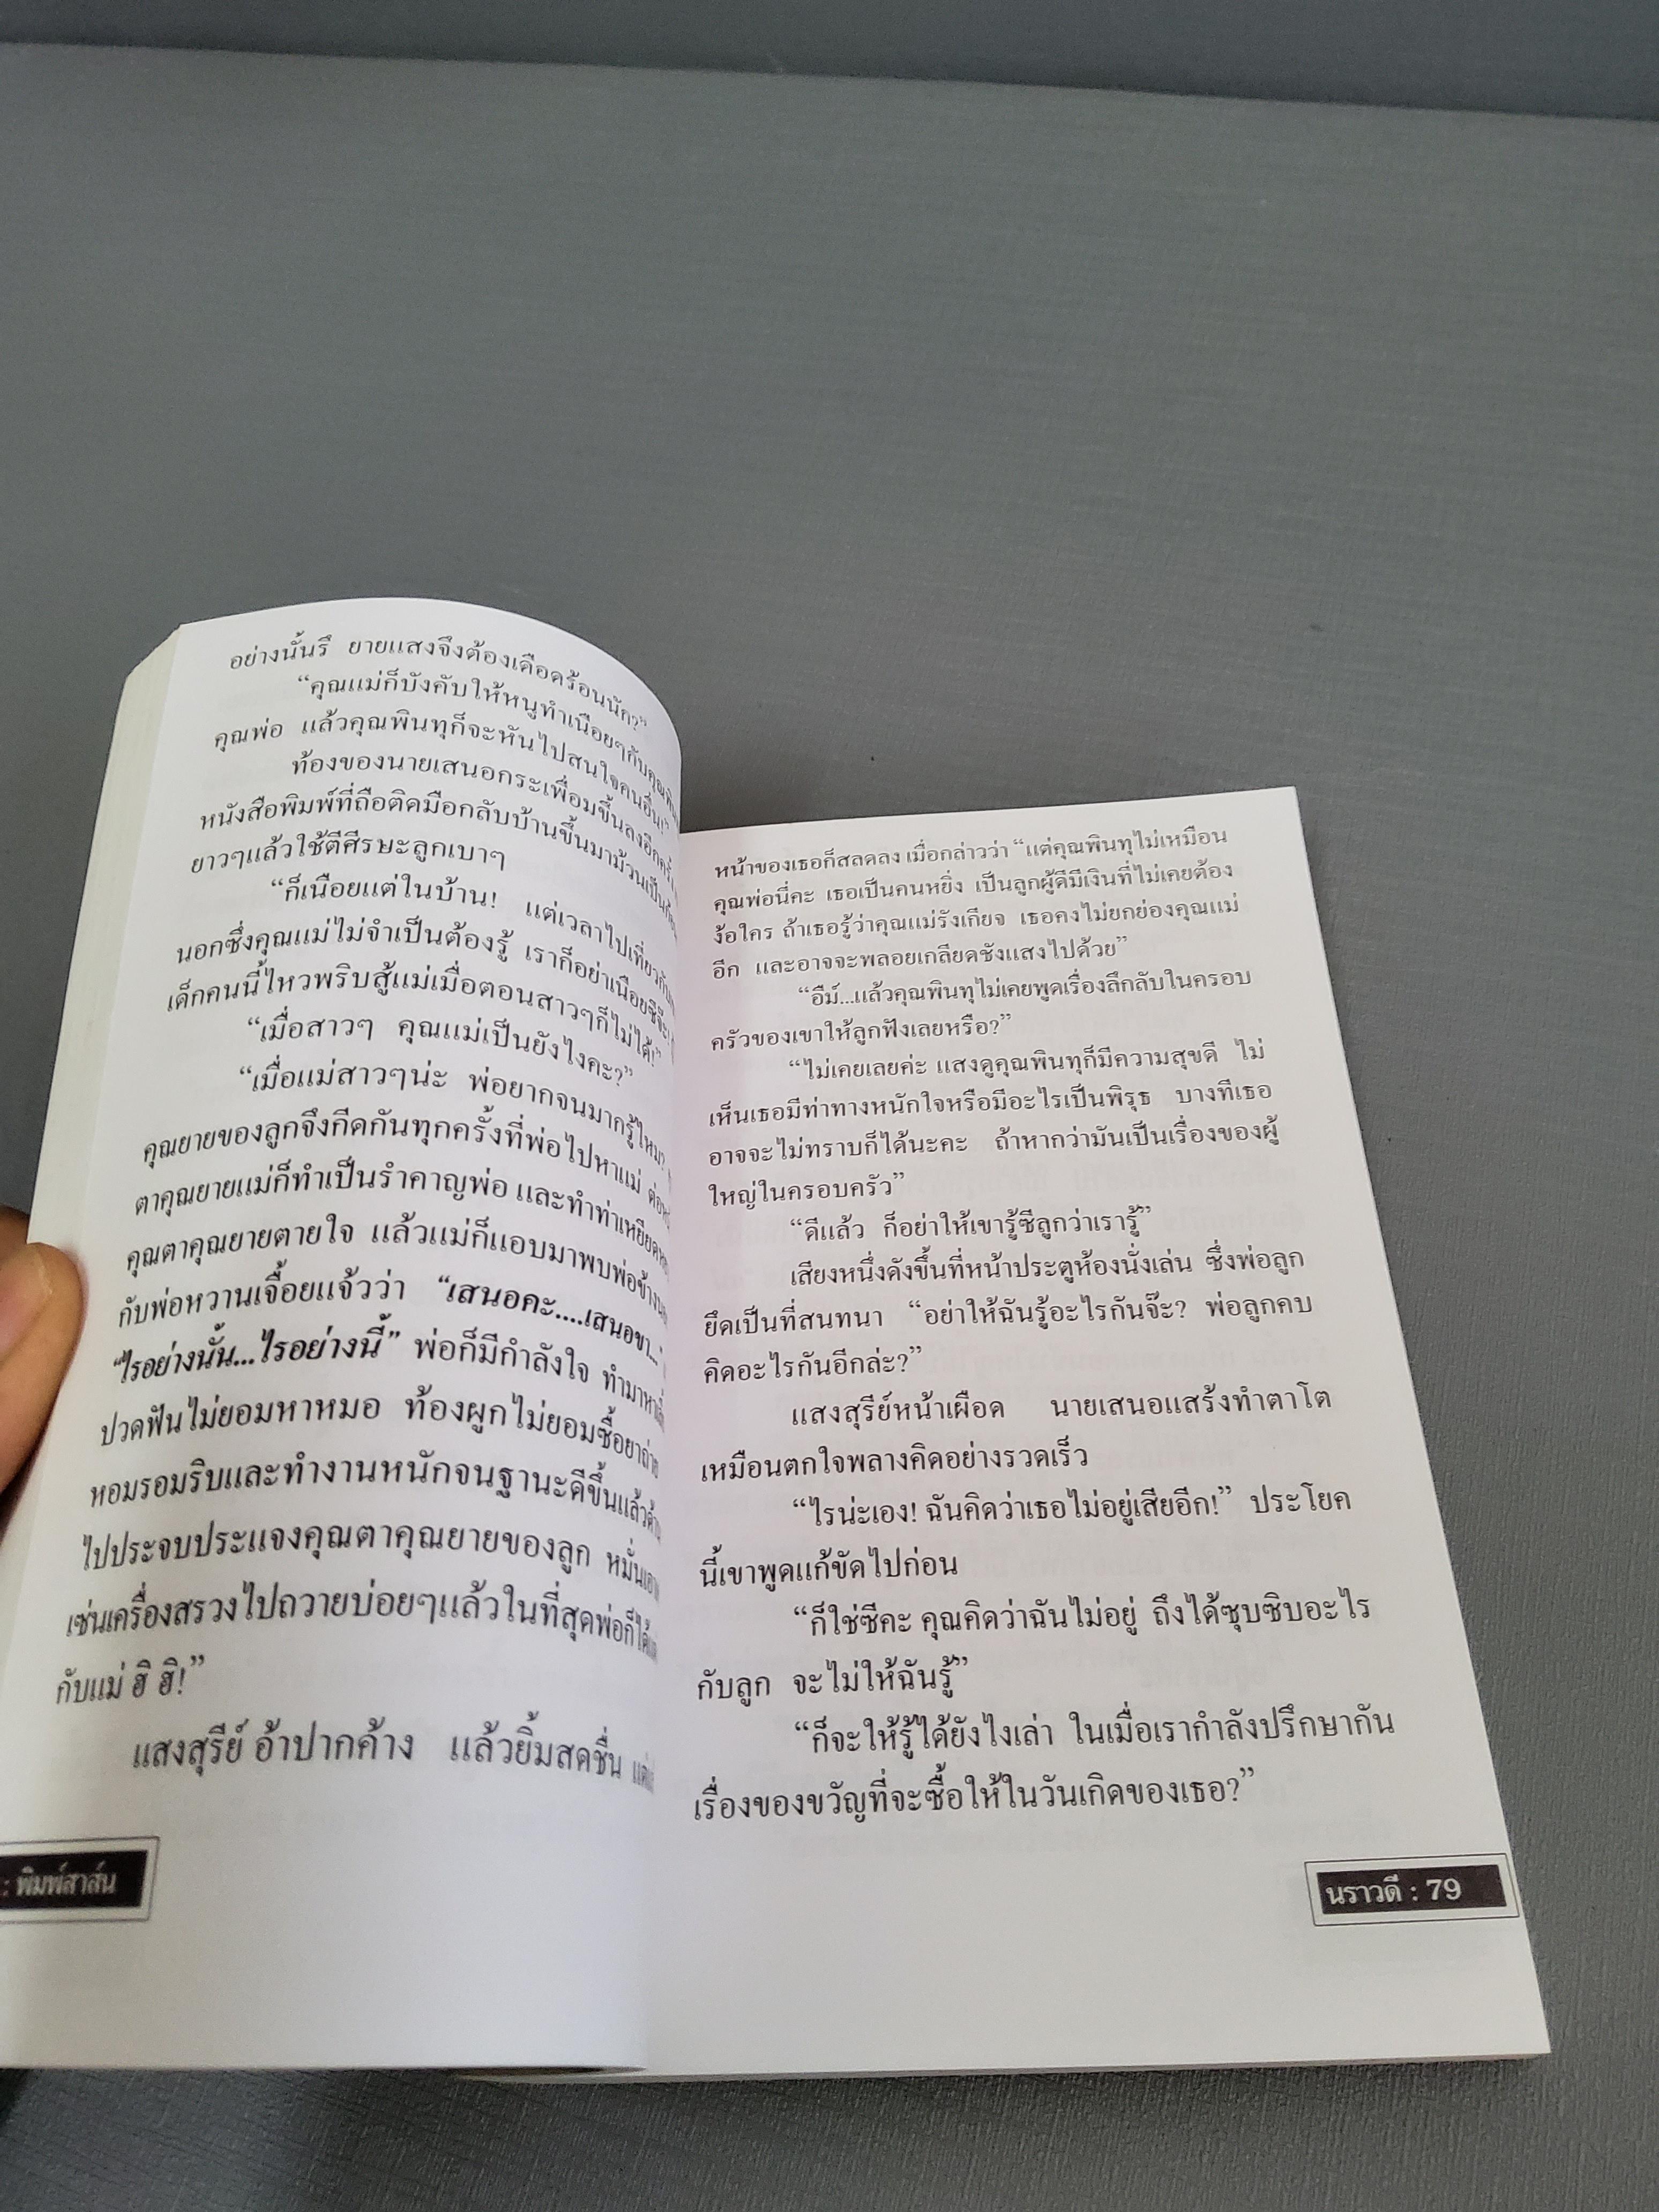 อย่างนั้นรึ ยายแสงจึงต้องเดือดร้อนนัก?”
“คุณแม่ก็บังคับให้หนูทำเนือยๆกับคุณ
คุณพ่อ แล้วคุณพินทุก็จะหันไปสนใจคนอื่น!”
ท้องของนายเสนอกระเพื่อมขึ้นลงอีกครั้ง
หนังสือพิมพ์ที่ถือติดมือกลับบ้านขึ้นมาม้วนเป็น
ยาวๆแล้วใช้ตีศีรษะลูกเบาๆ
“ก็เนือยแต่ในบ้าน! แต่เวลาไปเที่ยวกับ
นอกซึ่งคุณแม่ไม่จำเป็นต้องรู้ เราก็อย่าเนือยซีจ๊ะ
เด็กคนนี้ไหวพริบสู้แม่เมื่อตอนสาวๆก็ไม่ได้!”
“เมื่อสาวๆ คุณแม่เป็นยังไงคะ?”
“เมื่อแม่สาวๆน่ะ พ่อยากจนมากรู้ไหม?
คุณยายของลูกจึงกีดกันทุกครั้งที่พ่อไปหาแม่
ตาคุณยายแม่ก็ทำเป็นรำคาญพ่อ และทำท่าเหยียด
คุณตาคุณยายตายใจ แล้วแม่ก็แอบมาพบพ่อข้าง
กับพ่อหวานเจื้อยแจ้วว่า “เสนอคะ....เสนอขา...”
“ไรอย่างนั้น...ไรอย่างนี้” พ่อก็มีกำลังใจ ทำมาหา
ปวดฟันไม่ยอมหาหมอ ท้องผูกไม่ยอมซื้อยาถ่าย
หอมรอมริบและทำงานหนักจนฐานะดีขึ้นแล้ว
ไปประจบประแจงคุณตาคุณยายของลูก หมั่นเอา
เซ่นเครื่องสรวงไปถวายบ่อยๆแล้วในที่สุดพ่อก็ได้
กับแม่ ฮิ ฮิ!”
แสงสุรีย์ อ้าปากค้าง แล้วยิ้มสดชื่น
: พิมพ์สาส์น
หน้าของเธอก็สลดลง เมื่อกล่าวว่า “แต่คุณพินทุไม่เหมือน
คุณพ่อนี่คะ เธอเป็นคนหยิ่ง เป็นลูกผู้ดีมีเงินที่ไม่เคยต้อง
ง้อใคร ถ้าเธอรู้ว่าคุณแม่รังเกียจ เธอคงไม่ยกย่องคุณแม่
อีก และอาจจะพลอยเกลียดชังแสงไปด้วย”
“อืม์...แล้วคุณพินทุไม่เคยพูดเรื่องลึกลับในครอบ
ครัวของเขาให้ลูกฟังเลยหรือ?”
“ไม่เคยเลยค่ะ แสงดูคุณพินทุก็มีความสุขดี ไม่
เห็นเธอมีท่าทางหนักใจหรือมีอะไรเป็นพิรุธ บางทีเธอ
อาจจะไม่ทราบก็ได้นะคะ ถ้าหากว่ามันเป็นเรื่องของผู้
ใหญ่ในครอบครัว”
“ดีแล้ว ก็อย่าให้เขารู้ซีลูกว่าเรารู้”
เสียงหนึ่งดังขึ้นที่หน้าประตูห้องนั่งเล่น ซึ่งพ่อลูก
ยึดเป็นที่สนทนา “อย่าให้ฉันรู้อะไรกันจ๊ะ? พ่อลูกคบ
คิดอะไรกันอีกล่ะ?”
แสงสุรีย์หน้าเผือด นายเสนอแสร้งทำตาโต
เหมือนตกใจพลางคิดอย่างรวดเร็ว
“ไรน่ะเอง! ฉันคิดว่าเธอไม่อยู่เสียอีก!” ประโยค
นี้เขาพูดแก้ขัดไปก่อน
“ก็ใช่ซีคะ คุณคิดว่าฉันไม่อยู่ ถึงได้ซุบซิบอะไร
กับลูก จะไม่ให้ฉันรู้”
“ก็จะให้รู้ได้ยังไงเล่า ในเมื่อเรากำลังปรึกษากัน
เรื่องของขวัญที่จะซื้อให้ในวันเกิดของเธอ?”
นราวดี : 79